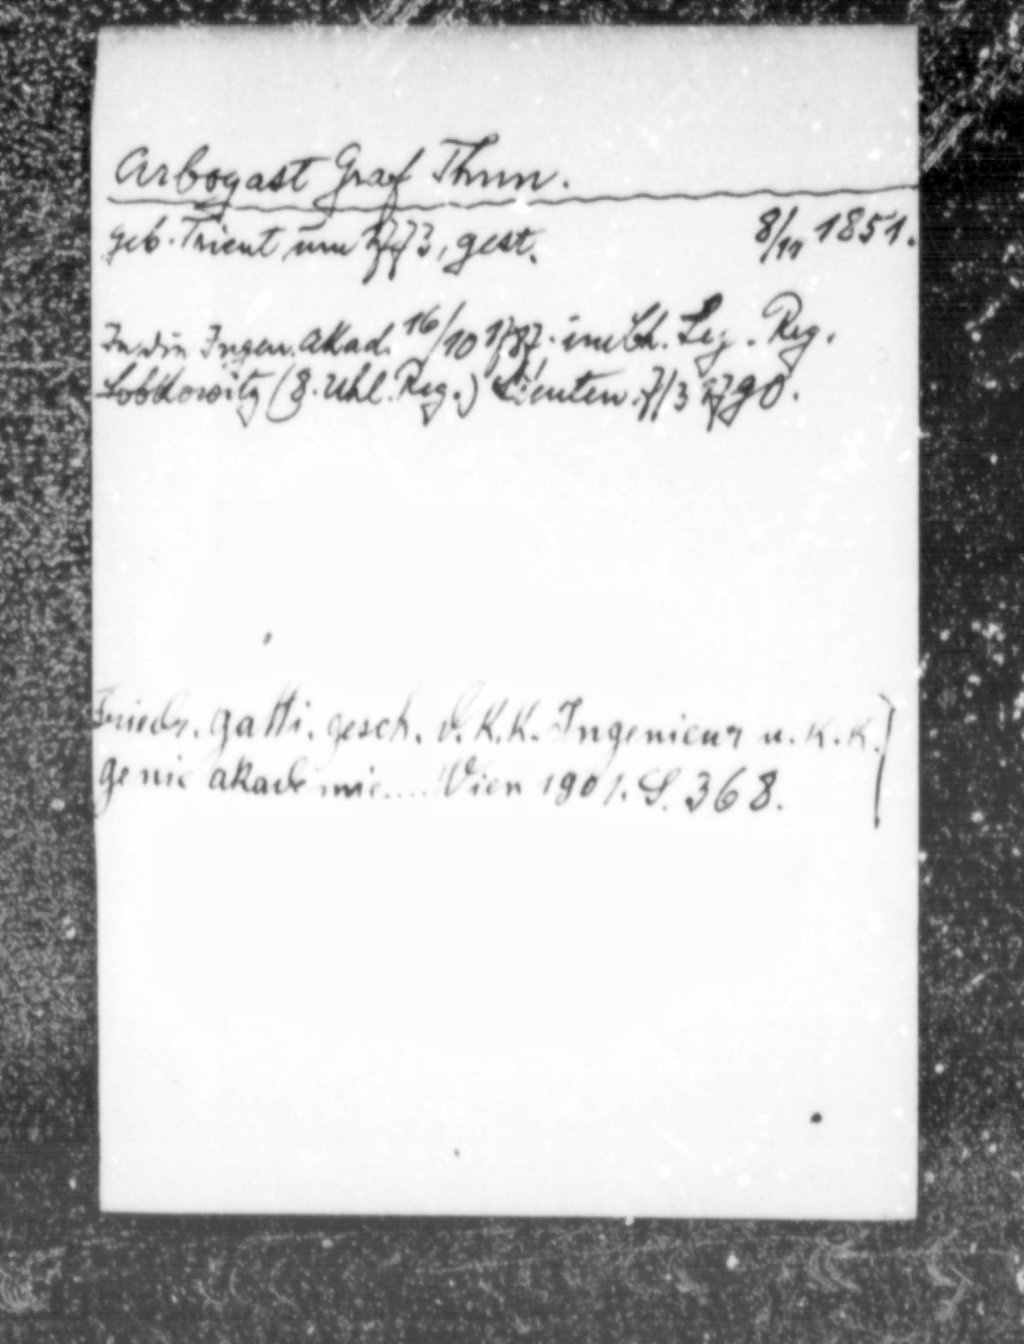 Arbogast Graf Thun.
geb. Trient um 1773, gest. 8/11 1851.
In die Ingen. Akad. 16/10 1787. Reg.
Lobkowitz (8. Uhl. Reg.) Lieuten. 7/3 1790.
Friedr. Gatti. Gesch. d. K. K. Ingenieur u. K. K.
Genie Akademie.... Wien 1901. S. 368.